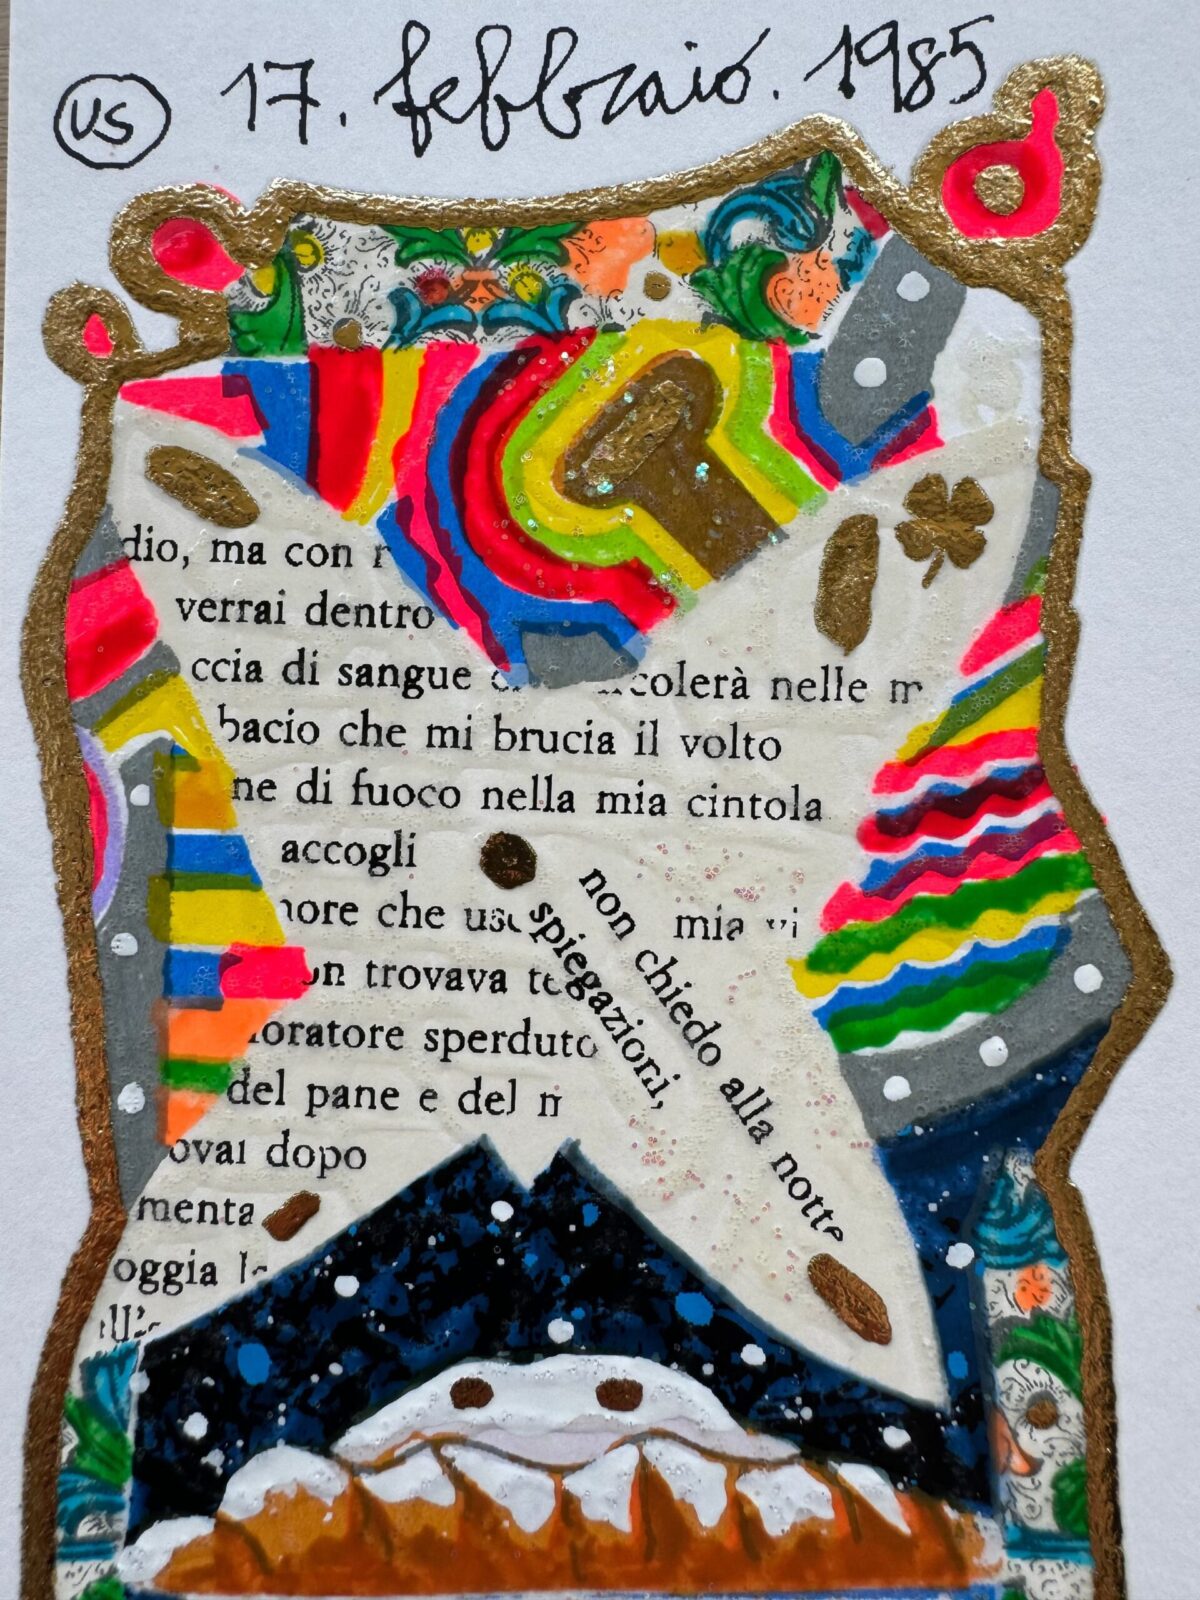 VS 17. febbraio. 1985
dio, ma con
verrai dentro
ccia di sangue colerà nelle
bacio che mi brucia il volto
ne di fuoco nella mia cintola
accogli
nore che mia
on trovava
loratore sperduto
del pane e del
ovai dopo
menta
oggia
non chiedo alla notte
spiegazioni,